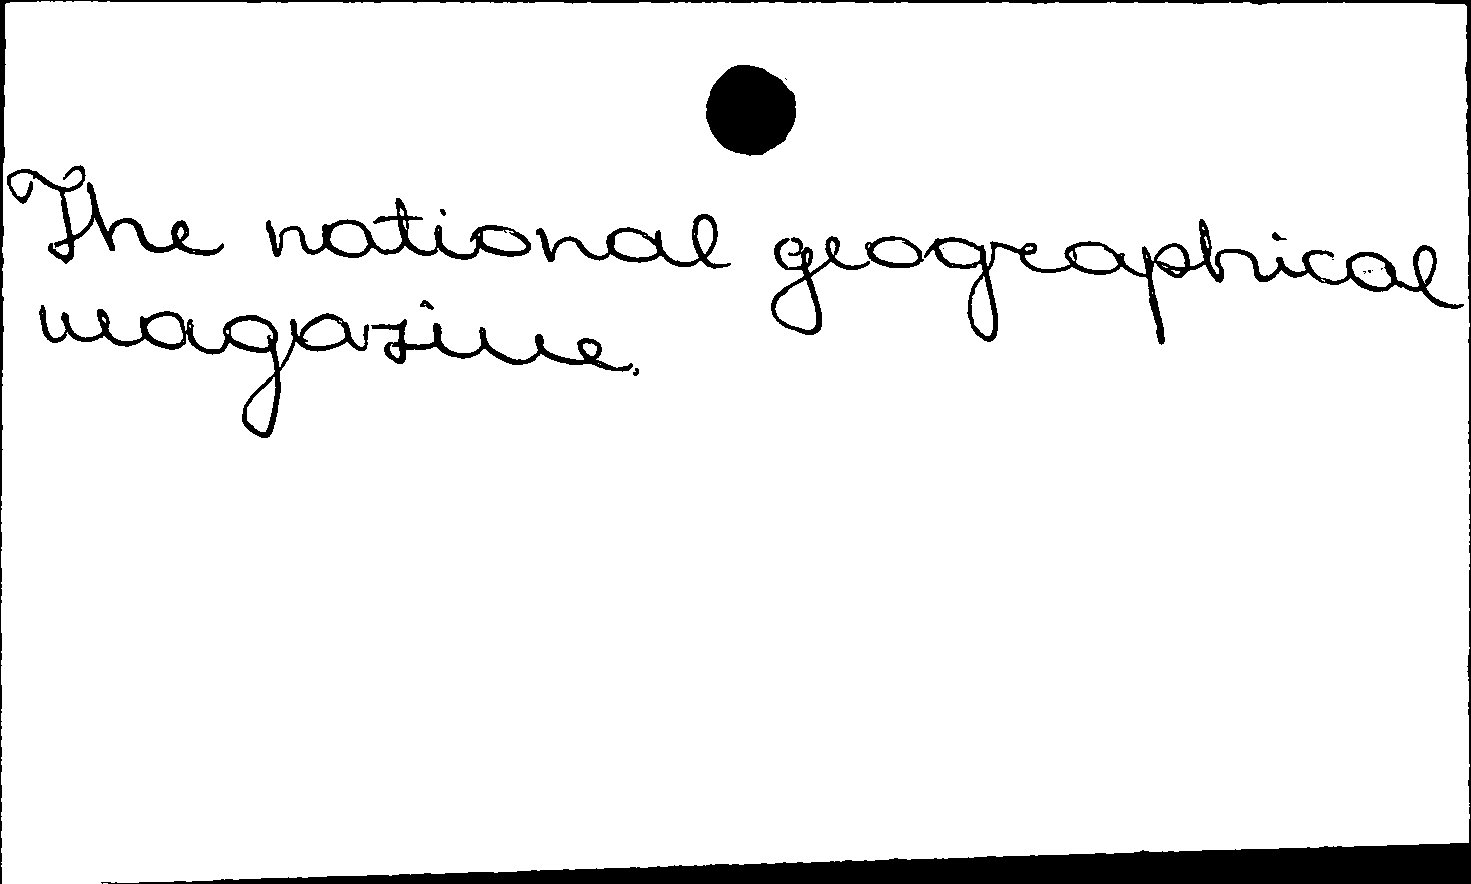 The national geographical
magazine.